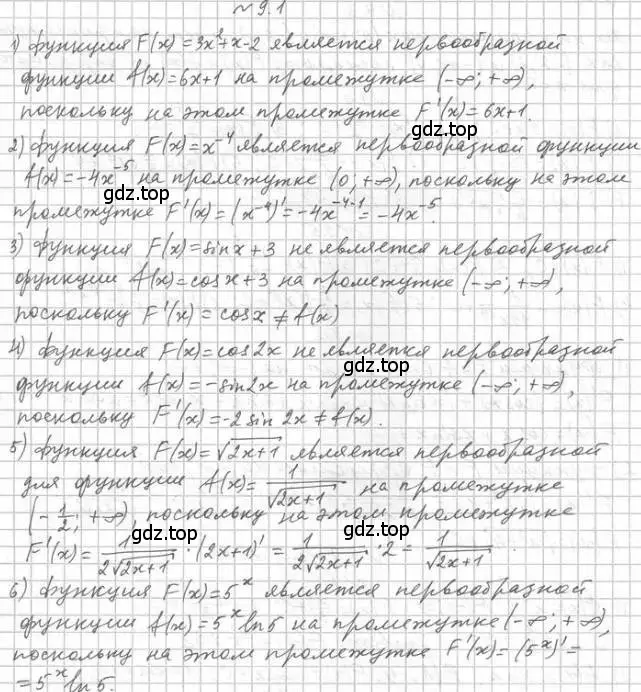 № 9.1
1) Функция F(x)=3x²+x-2 является первообразной
функции f(x)=6x+1 на промежутке (-∞; +∞),
поскольку на этом промежутке F'(x)=6x+1.
gdz.top
2) Функция F(x)=x⁻⁴ является первообразной функции
f(x)=-4x⁻⁵ на промежутке (0; +∞), поскольку на этом
gdz.top
промежутке F'(x)=(x⁻⁴)'=-4x⁻⁴⁻¹=-4x⁻⁵.
3) Функция F(x)=sinx+3 не является первообразной
gdz.top
функции f(x)=cosx+3 на промежутке (-∞; +∞),
поскольку F'(x)=cosx≠f(x)
4) Функция F(x)=cos2x не является первообразной
gdz.top
функции f(x)=-sin2x на промежутке (-∞; +∞),
поскольку F'(x)=-2sin2x≠f(x).
5) Функция F(x)=√(2x+1) является первообразной
для функции f(x)=1/√(2x+1) на промежутке
(-1/2; +∞), поскольку на этом промежутке
gdz.top
gdz.top
F'(x)=1/(2√(2x+1))·(2x+1)'=1/(2√(2x+1))·2=1/√(2x+1)
6) Функция F(x)=5ˣ является первообразной
функции f(x)=5ˣln5 на промежутке (-∞; +∞),
поскольку на этом промежутке F'(x)=(5ˣ)'=
gdz.top
=5ˣln5.